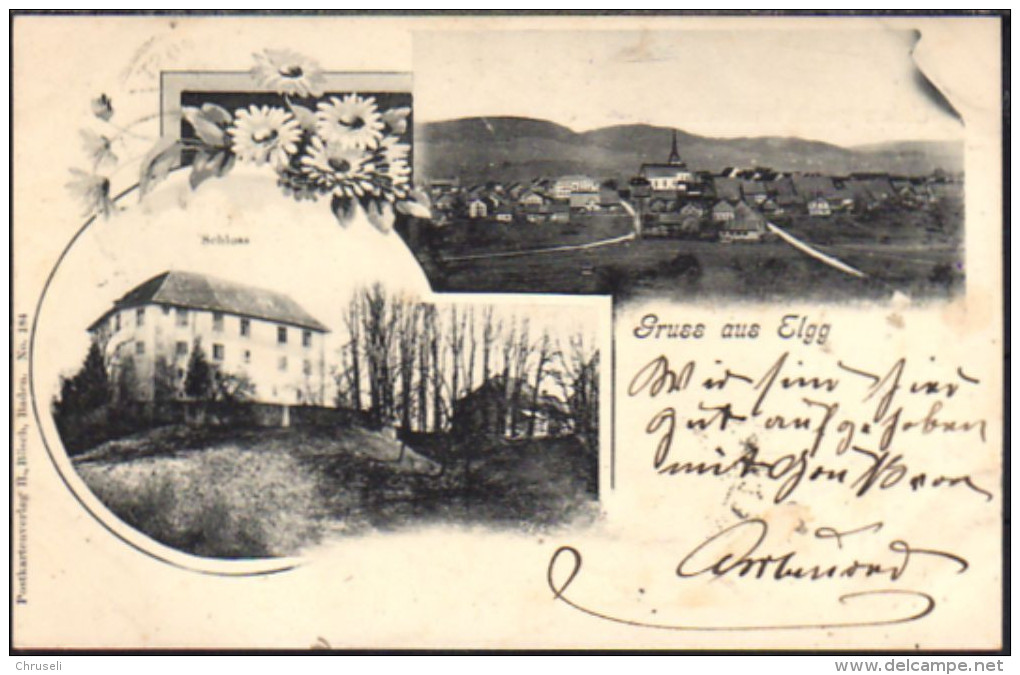 Schloss
Gruss aus Elgg
Wir sind hier
gut aufgehoben
mit
Postkartenverlag H. Bösch, Baden. No. 184
Chruseli
www.delcampe.net